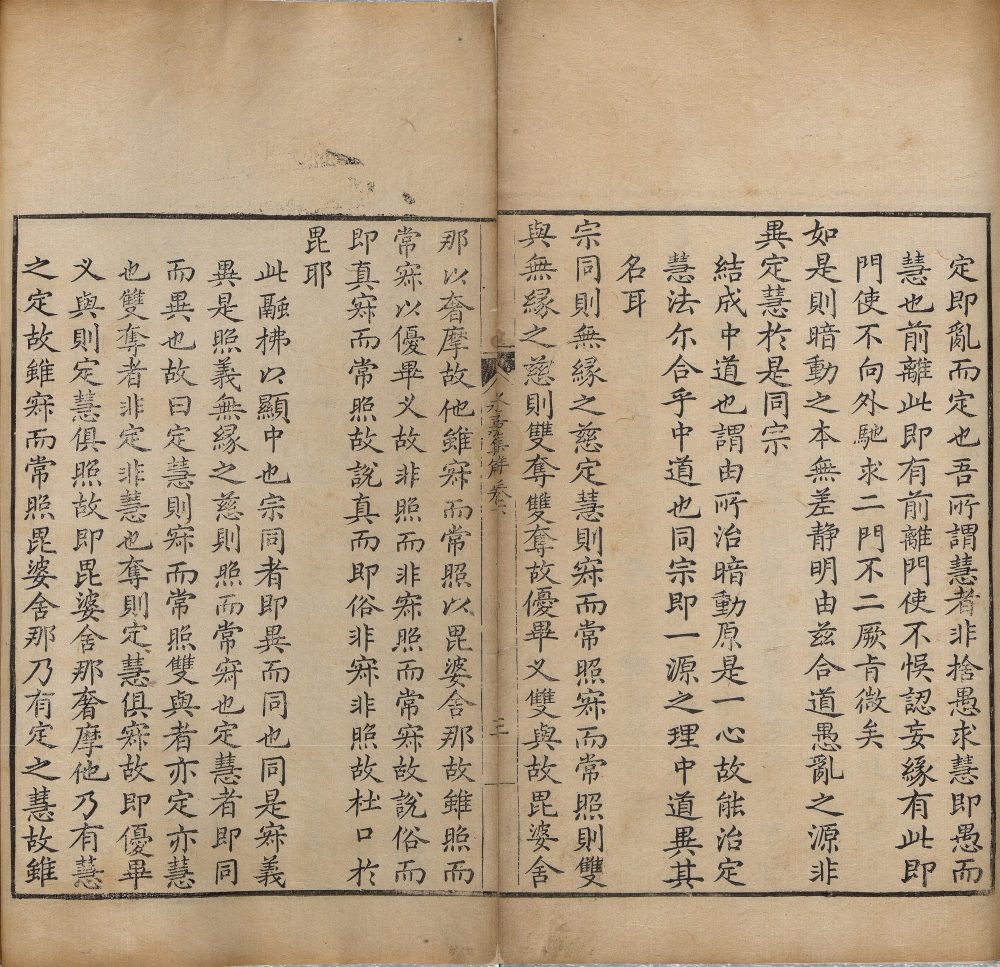 定即亂而定也吾所謂慧者非捨愚求慧即愚而
慧也前離此即有前離門使不悞認妄緣有此即
門使不向外馳求二門不二厥㫖微矣
如是則暗動之本無差靜明由兹合道愚亂之源非
異定慧於是同宗
結成中道也謂由所治暗動原是一心故能治定
慧法尓合乎中道也同宗即一源之理中道異其
名耳
宗同則無緣之慈定慧則㝥而常照㝥而常照則雙
與無緣之慈則雙奪雙奪故優畢义雙與故毘婆舍
永嘉集解卷六
三
那以奢摩故他雖㝥而常照以毘婆舍那故雖照而
常㝥以優畢义故非照而非㝥照而常㝥故說俗而
即真㝥而常照故說真而即俗非㝥非照故杜口於
毘耶
此融拂以顯中也宗同者即異而同也同是㝥義
異是照義無緣之慈則照而常㝥也定慧者即同
而異也故曰定慧則㝥而常照雙與者亦定亦慧
也雙奪者非定非慧也奪則定慧俱㝥故即優畢
义與則定慧俱照故即毘婆舍那奢摩他乃有慧
之定故雖㝥而常照毘婆舍那乃有定之慧故雖